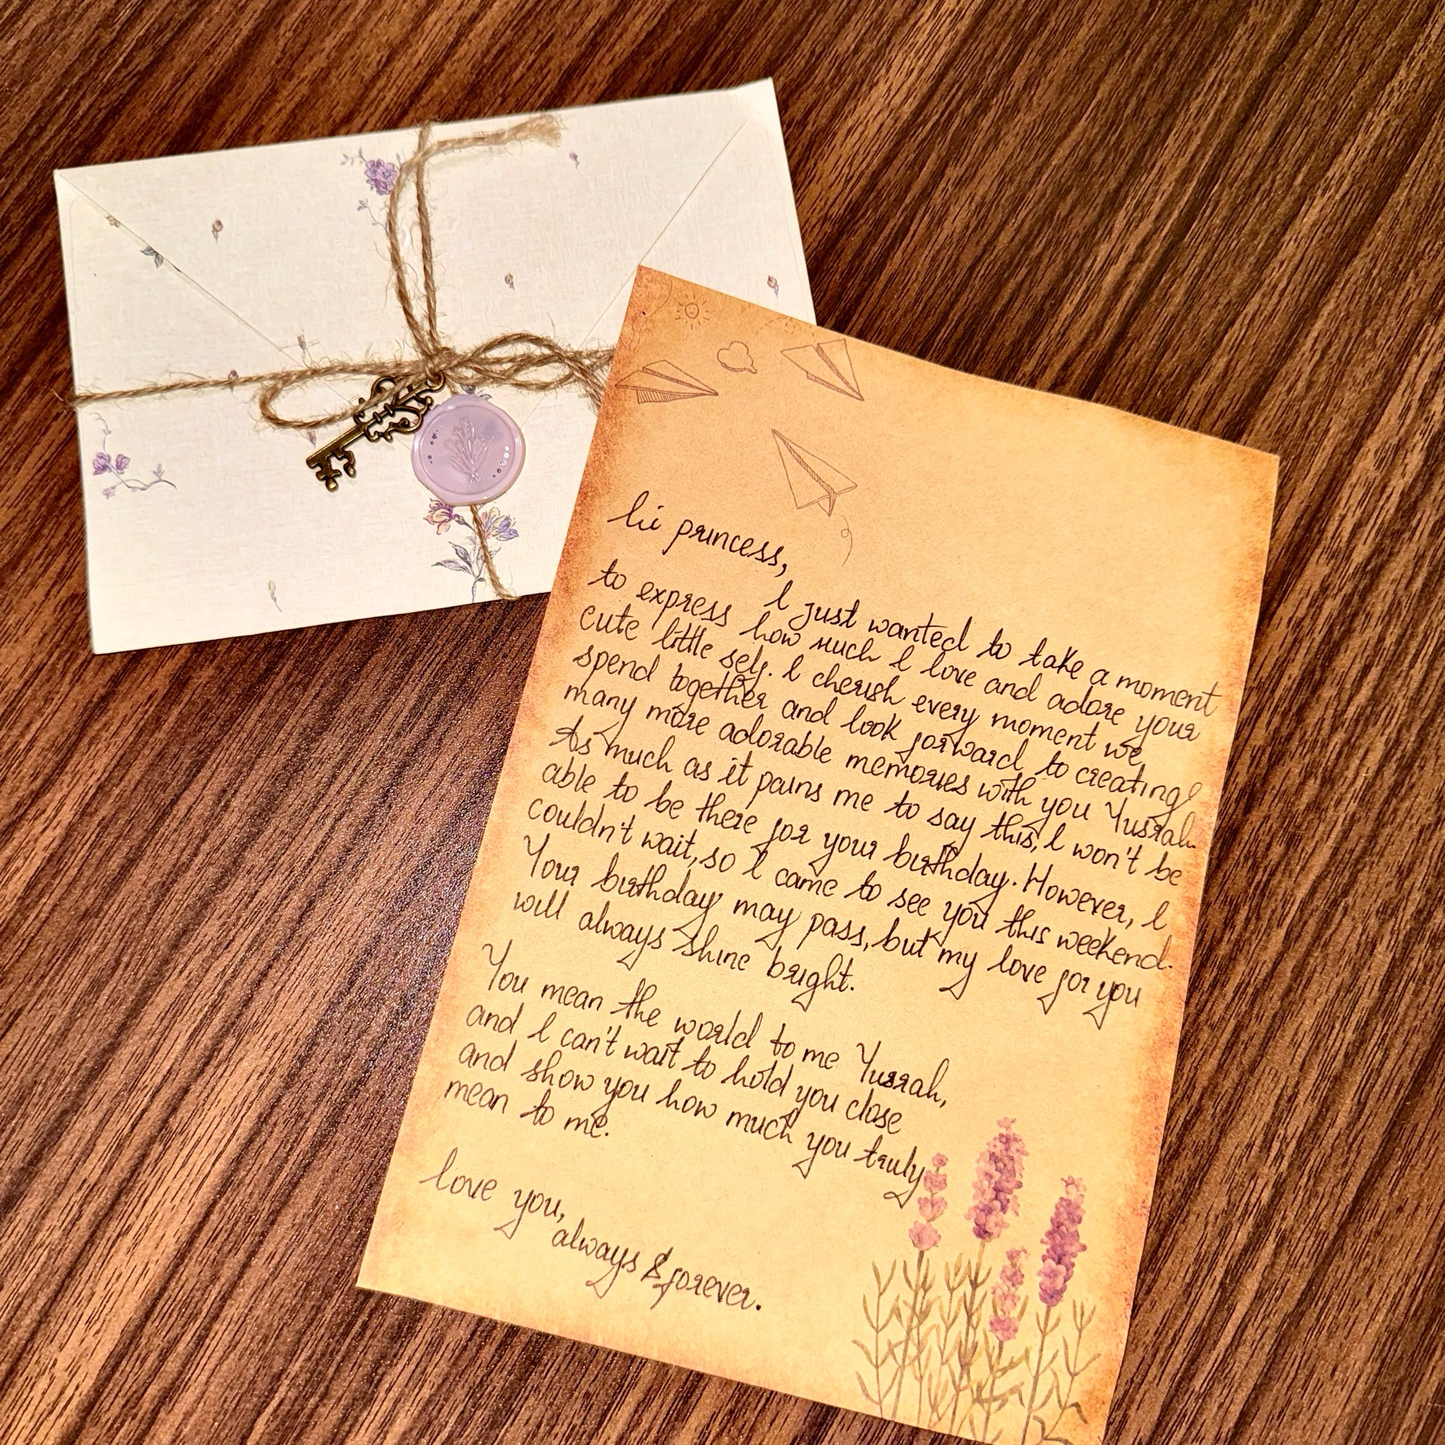 hi princess,
I just wanted to take a moment
to express how much I love and adore your
cute little self. I cherish every moment we
spend together and look forward to creating
many more adorable memories with you Yusrah.
As much as it pains me to say this, I won't be
able to be there for your birthday. However, I
couldn't wait, so I came to see you this weekend.
Your birthday may pass, but my love for you
will always shine bright.
You mean the world to me Yusrah,
and I can't wait to hold you close
and show you how much you truly
mean to me.
love you,
always & forever.